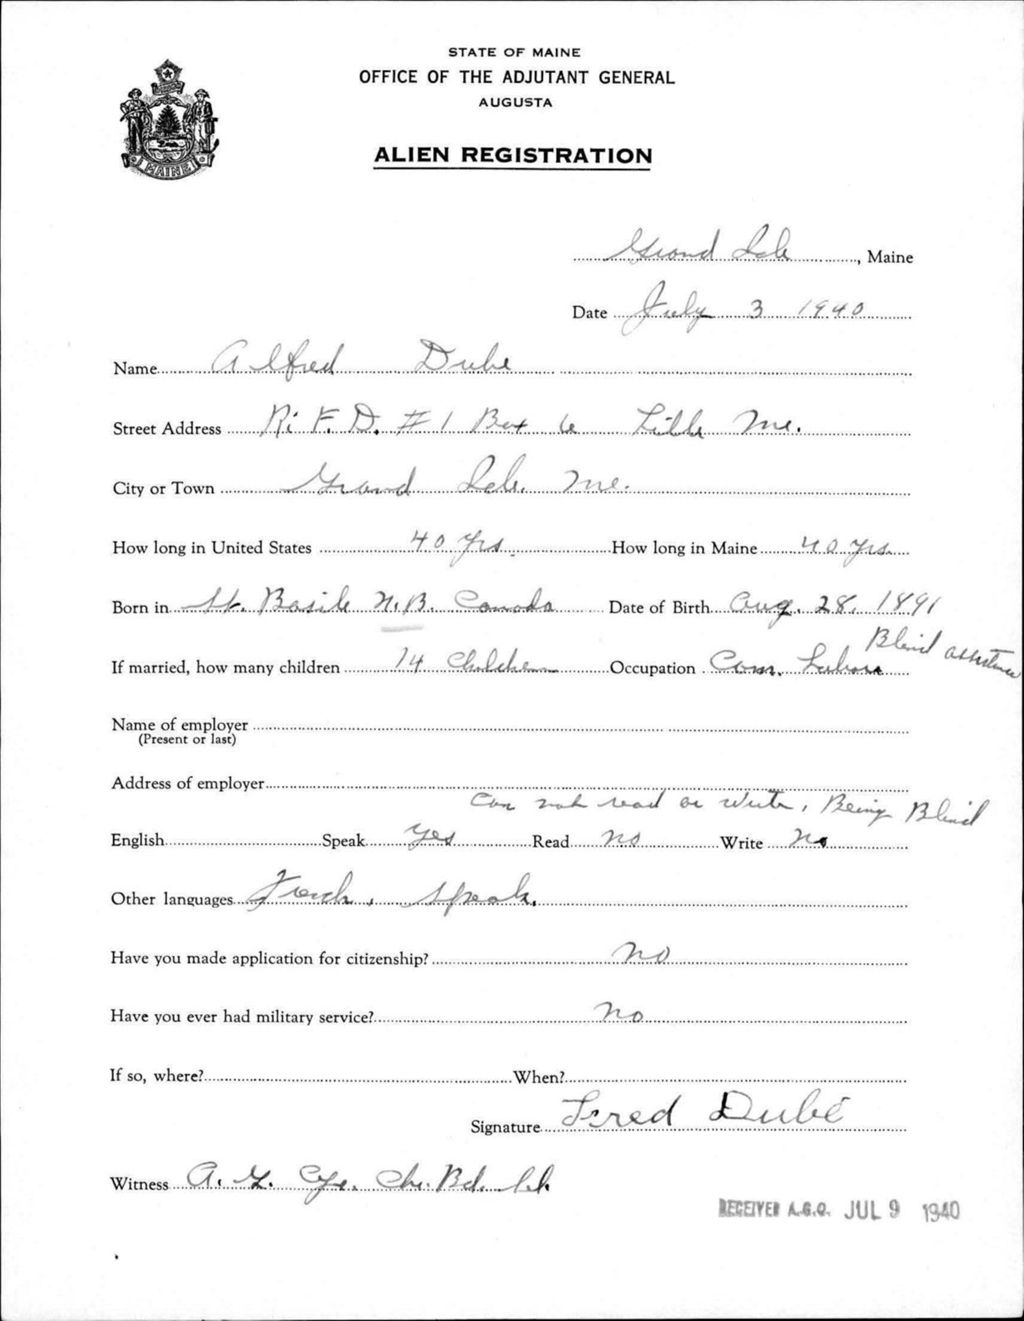 STATE OF MAINE
OFFICE OF THE ADJUTANT GENERAL
AUGUSTA
MAINE
ALIEN REGISTRATION
Grand Isle, Maine
Date July 3 1940
Name Alfred Dube
Street Address R. F. D. #1 Box 6 Lille Me.
City or Town Grand Isle. Me.
How long in United States 40 yrs. How long in Maine 40 yrs.
Born in St. Basile N.B. Canada Date of Birth Aug. 28, 1891
Blind assistance
If married, how many children 14 Children Occupation Com. Labor
Name of employer
(Present or last)
Address of employer
Can not read or write, Being Blind
English Speak Yes Read No Write No
Other languages French, Speak.
Have you made application for citizenship? No
Have you ever had military service? No
If so, where? When?
Signature Fred Dubé
Witness A. Cyr.
RECEIVED A.G.O. JUL 9 1940